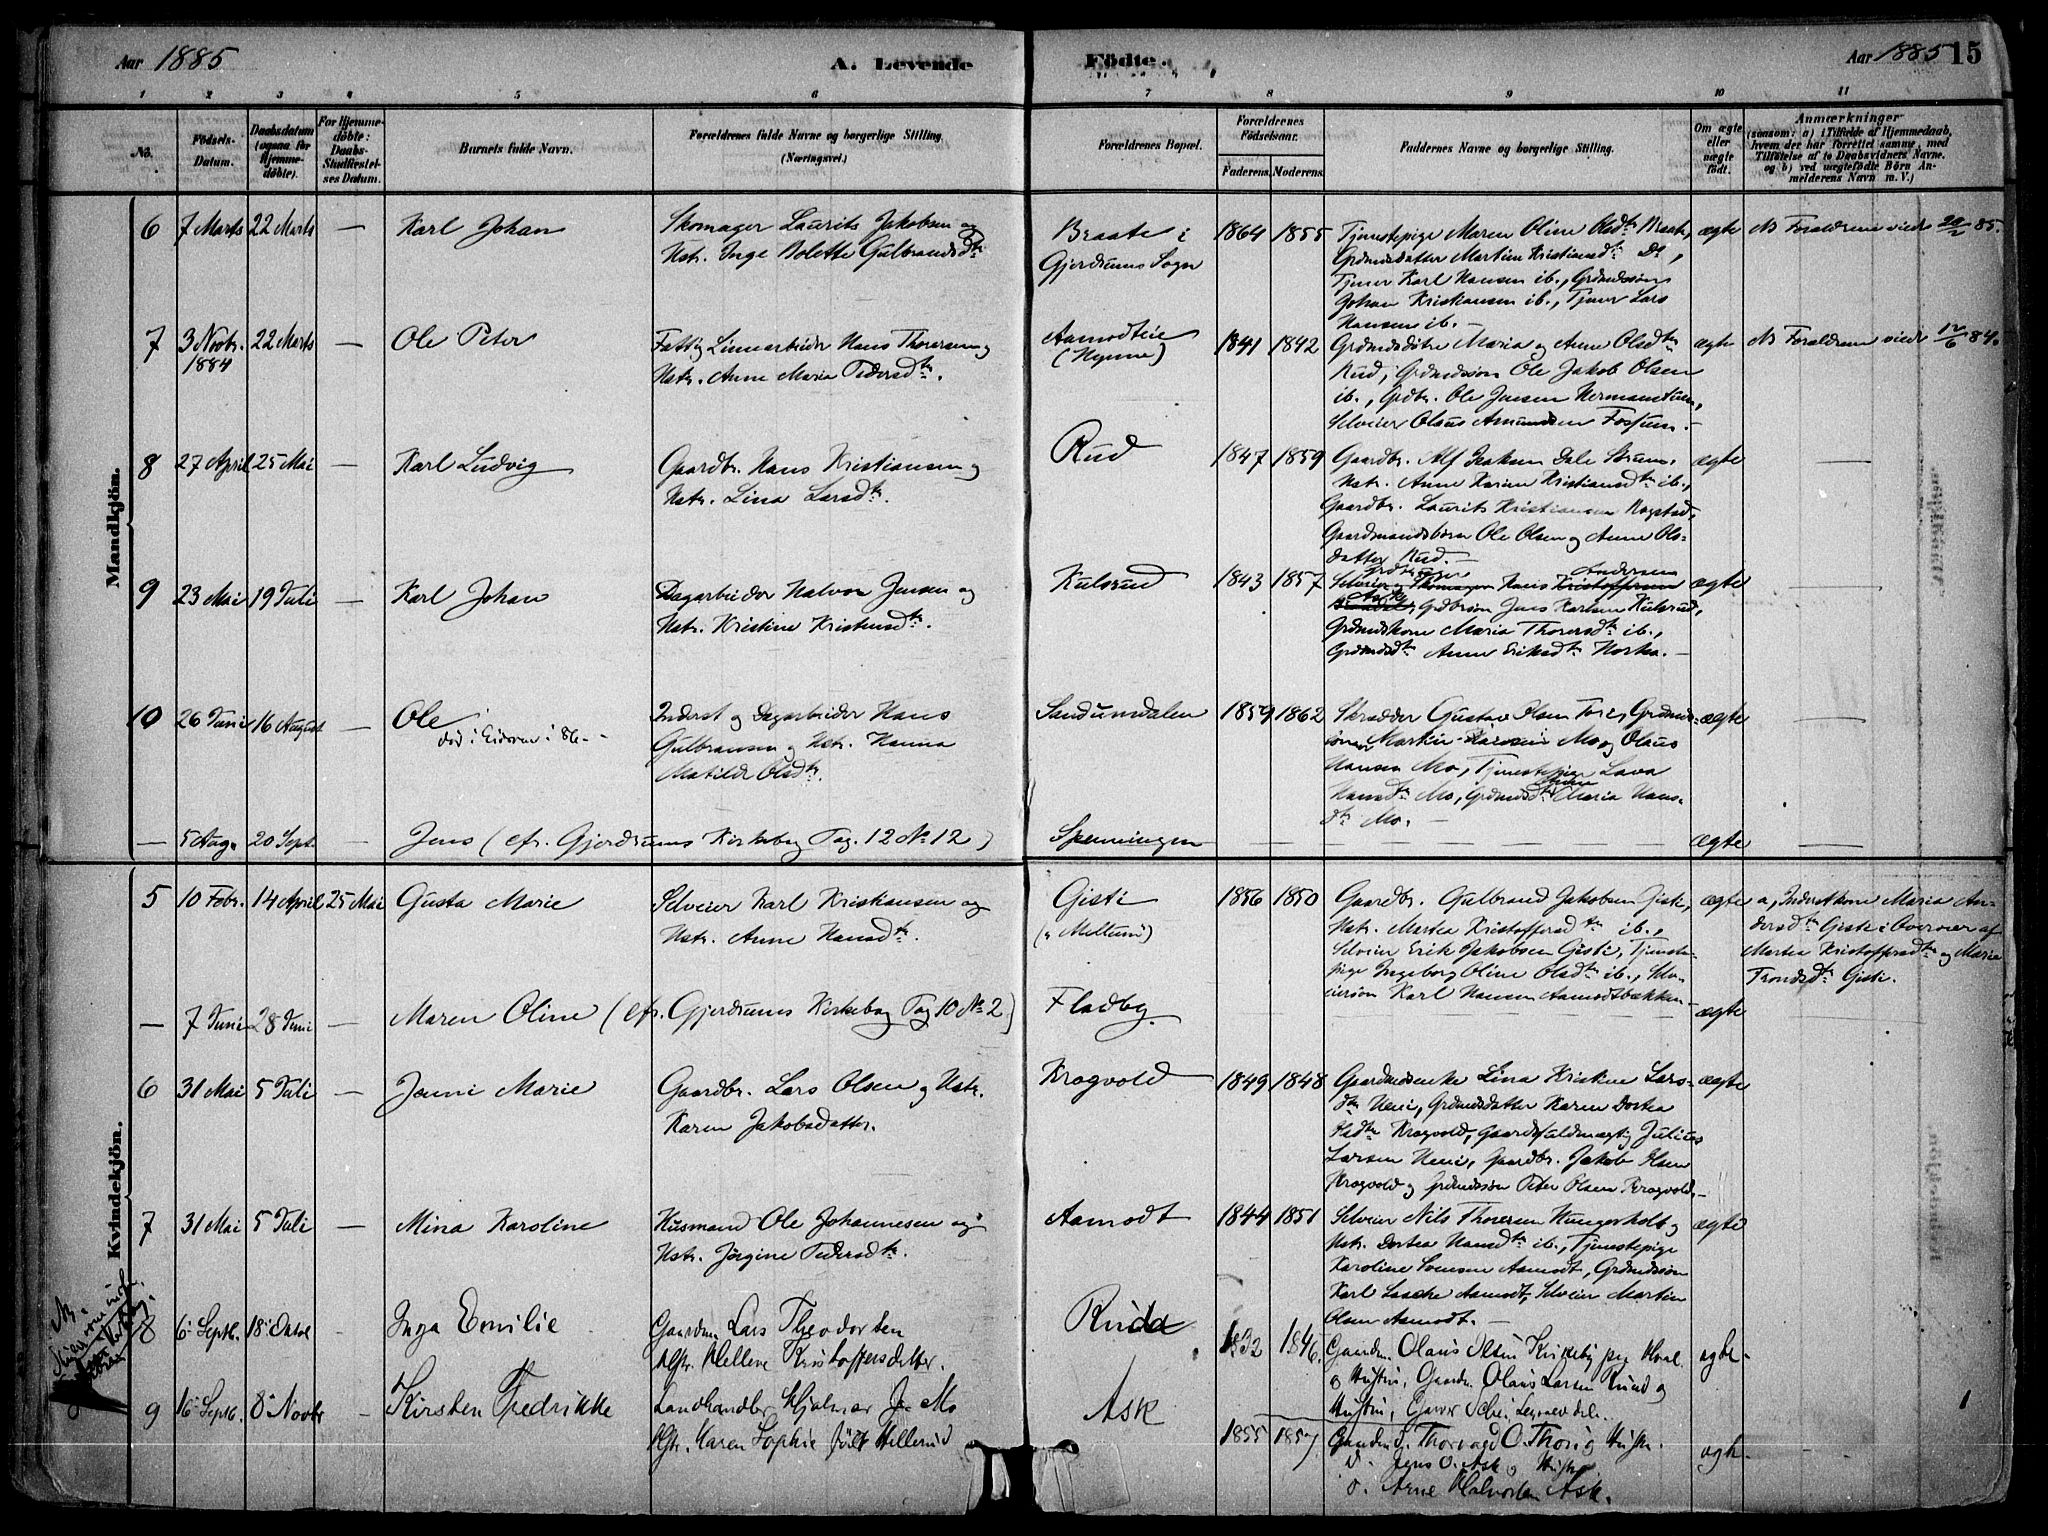 Aar 1885
A. Levende Födte.
Aar 1885 15
1 2 3 4 5 6 7 8 9 10 11
No.
Födsels-
Datum.
Daabsdatum
(ogsaa for
Hjemme-
døbte).
For Hjemme-
døbte:
Daabs-
Stadfæstel-
ses Datum.
Barnets fulde Navn.
Forældrenes fulde Navne og borgerlige Stilling.
(Næringsvei.)
Forældrenes Bopæl.
Forældrenes
Födselsaar.
Faderens. Moderens.
Faddernes Navne og borgerlige Stilling.
Om ægte
eller
uægte
født.
Anmærkninger
(saasom: a) i Tilfælde af Hjemmedaab,
hvem der har forrettet samme, med
Tilføielse af to Daabsvidners Navne.
og b) ved uægtefødte Börn An-
melderens Navn m. V.)
Mandkjön.
6 7 Marts 22 Marts — Karl Johan
Skomager Laurits Jakobsen og
Hstr. Inge Bolette Gulbrandsdtr
Braate i
Gjerdrums Sogn
1864 1855
Tjenestepige Maren Oline Olsdtr Braate,
Grdmdsdatter Martine Kristiansdtr Do,
Tjener Karl Hansen ib., Grdmdssøn
Johan Kristiansen ib., Tjener Lars
Hansen ib. —
ægte Nb Forældrene viede 20/2 85.
7 3 Novbr. 22 Marts — Ole Peter
1884
Fattig Linnarbeider Hans Thoresen og
Hstr. Anne Maria Pedersdtr.
Aamodteie
(Nynne)
1841 1842
Grdmdsdøtre Maria og Anne Olsdtr
Rud, Grdmdssøn Ole Jakob Olsen
ib., Grdbr. Ole Jensen Hermanstuen,
Selveier Olaus Amundsen Fossum. —
ægte Nb Forældrene viede 12/6 84.
8 27 April 25 Mai — Karl Ludvig
Gaardbr. Hans Kristiansen og
Hstr. Lina Larsdtr.
Rud
1847 1859
Gaardbr. Alf Isaksen Dale
Hstr. Anne Karine Kristiansdtr ib.,
Gaardbr. Laurits Kristiansen Ragstad,
Gaardmandsbörn Ole Olsen og Anne Ols-
datter Rud. —
ægte —
9 23 Mai 19 Juli — Karl Johan
Dagarbeider Halvor Jensen og
Hstr. Kristine Kristensdtr.
Kulsrud
1843 1857
Selveier Hans Kristoffersen Andersen
Ask, Grdbrsøn Jens Karlsen Kulsrud,
Grdmdskone Maria Thorersdtr ib.,
Grdmdsdtr Anne Eriksdtr Horka. —
ægte —
10 26 Juni 16 August — Ole
död i Eidsvou i 86 -
Inderst og Dagarbeider Hans
Gulbransen og Hstr. Hanna
Matilde Olsdtr.
Sandumdalen
1859 1862
Skrædder Gustav Olsen Tori, Grdmds-
sønner Martin Hansen Mo og Olaus
Hansen Mo, Tjenestepige Lava
Hansdtr Mo, Grdmdsdtr Maria Hans-
dtr Mo. —
ægte —
— 5 Aug. 20 Sept. — Jens (cfr. Gjerdrums Kirkebog Pag. 12 No 12)
Spenningen
ægte —
Kvindekjön.
5 10 Febr. 14 April 25 Mai Gusta Marie
Selveier Karl Kristiansen og
Hstr. Anne Hansdtr.
Gisti
(" Meltum)
1856 1850
Gaardbr. Gulbrand Jakobsen Giste,
Hstr. Martea Kristoffersdtr ib.,
Selveier Erik Jakobsen Gisti, Tjeneste-
pige Ingeborg Oline Olsdtr ib., Selv-
eiersøn Karl Hansen Aamodtbakken —
ægte
a, Inderstkone Maria An-
dersdtr Gisti i Overvær af
Martea Kristoffersdtr og Maria
Trondsdtr Gisti.
— 7 Juni 28 Juni — Maren Oline (cfr. Gjerdrums Kirkebog Pag 10 No 2)
Fladby
ægte
6 31 Mai 5 Juli — Jenni Marie
Gaardbr. Lars Olsen og Hstr.
Karen Jakobsdatter.
Krogvold
1849 1848
Gaardmdsenke Lina Kristine Lars-
dtr Heni, Grdmdsdatter Karen Dortea
Olsdtr Krogvold, Gaardsfuldmægtig Julius
Larsen Heni, Gaardbr. Jakob Olsen
Krogvold og Grdmdssøn Peter Olsen Krogvold. —
ægte
7 31 Mai 5 Juli — Mina Karoline
Husmand Ole Johannesen og
Hstr. Jörgine Pedersdtr.
Aamodt
1844 1851
Selveier Nils Thoresen Hungerholt og
Hstr. Dortea Hansdtr ib., Tjenestepige
Karoline Svensen Aamodt, Grdmdssøn
Karl Aamodt, Selveier Martin
Olsen Aamodt. —
ægte
8 6 Septb. 18 Octbe Inga Emilie
Gaardm Lars Theodorsen
Hstr. Hellene Kristoffersdatter.
Ruda
1832 1846.
Gaardm. Olaus Olsen Kirkeby
o Hustru, Gaardm. Olaus Larsen Ruud og
Hustru,
ægte
9 16 Septb. 8 Novbr — Kirsten Fredrikke
Landhandler Hjalmar J. Mo
Hstr. Karen Sophie født Hillerud
Ask
1855 1857
Gaardm. Thorvald O. Thori og Hustr.
o. Jens O. Ask og Hustr
o. Arne Halvorsen Ask.
ægte